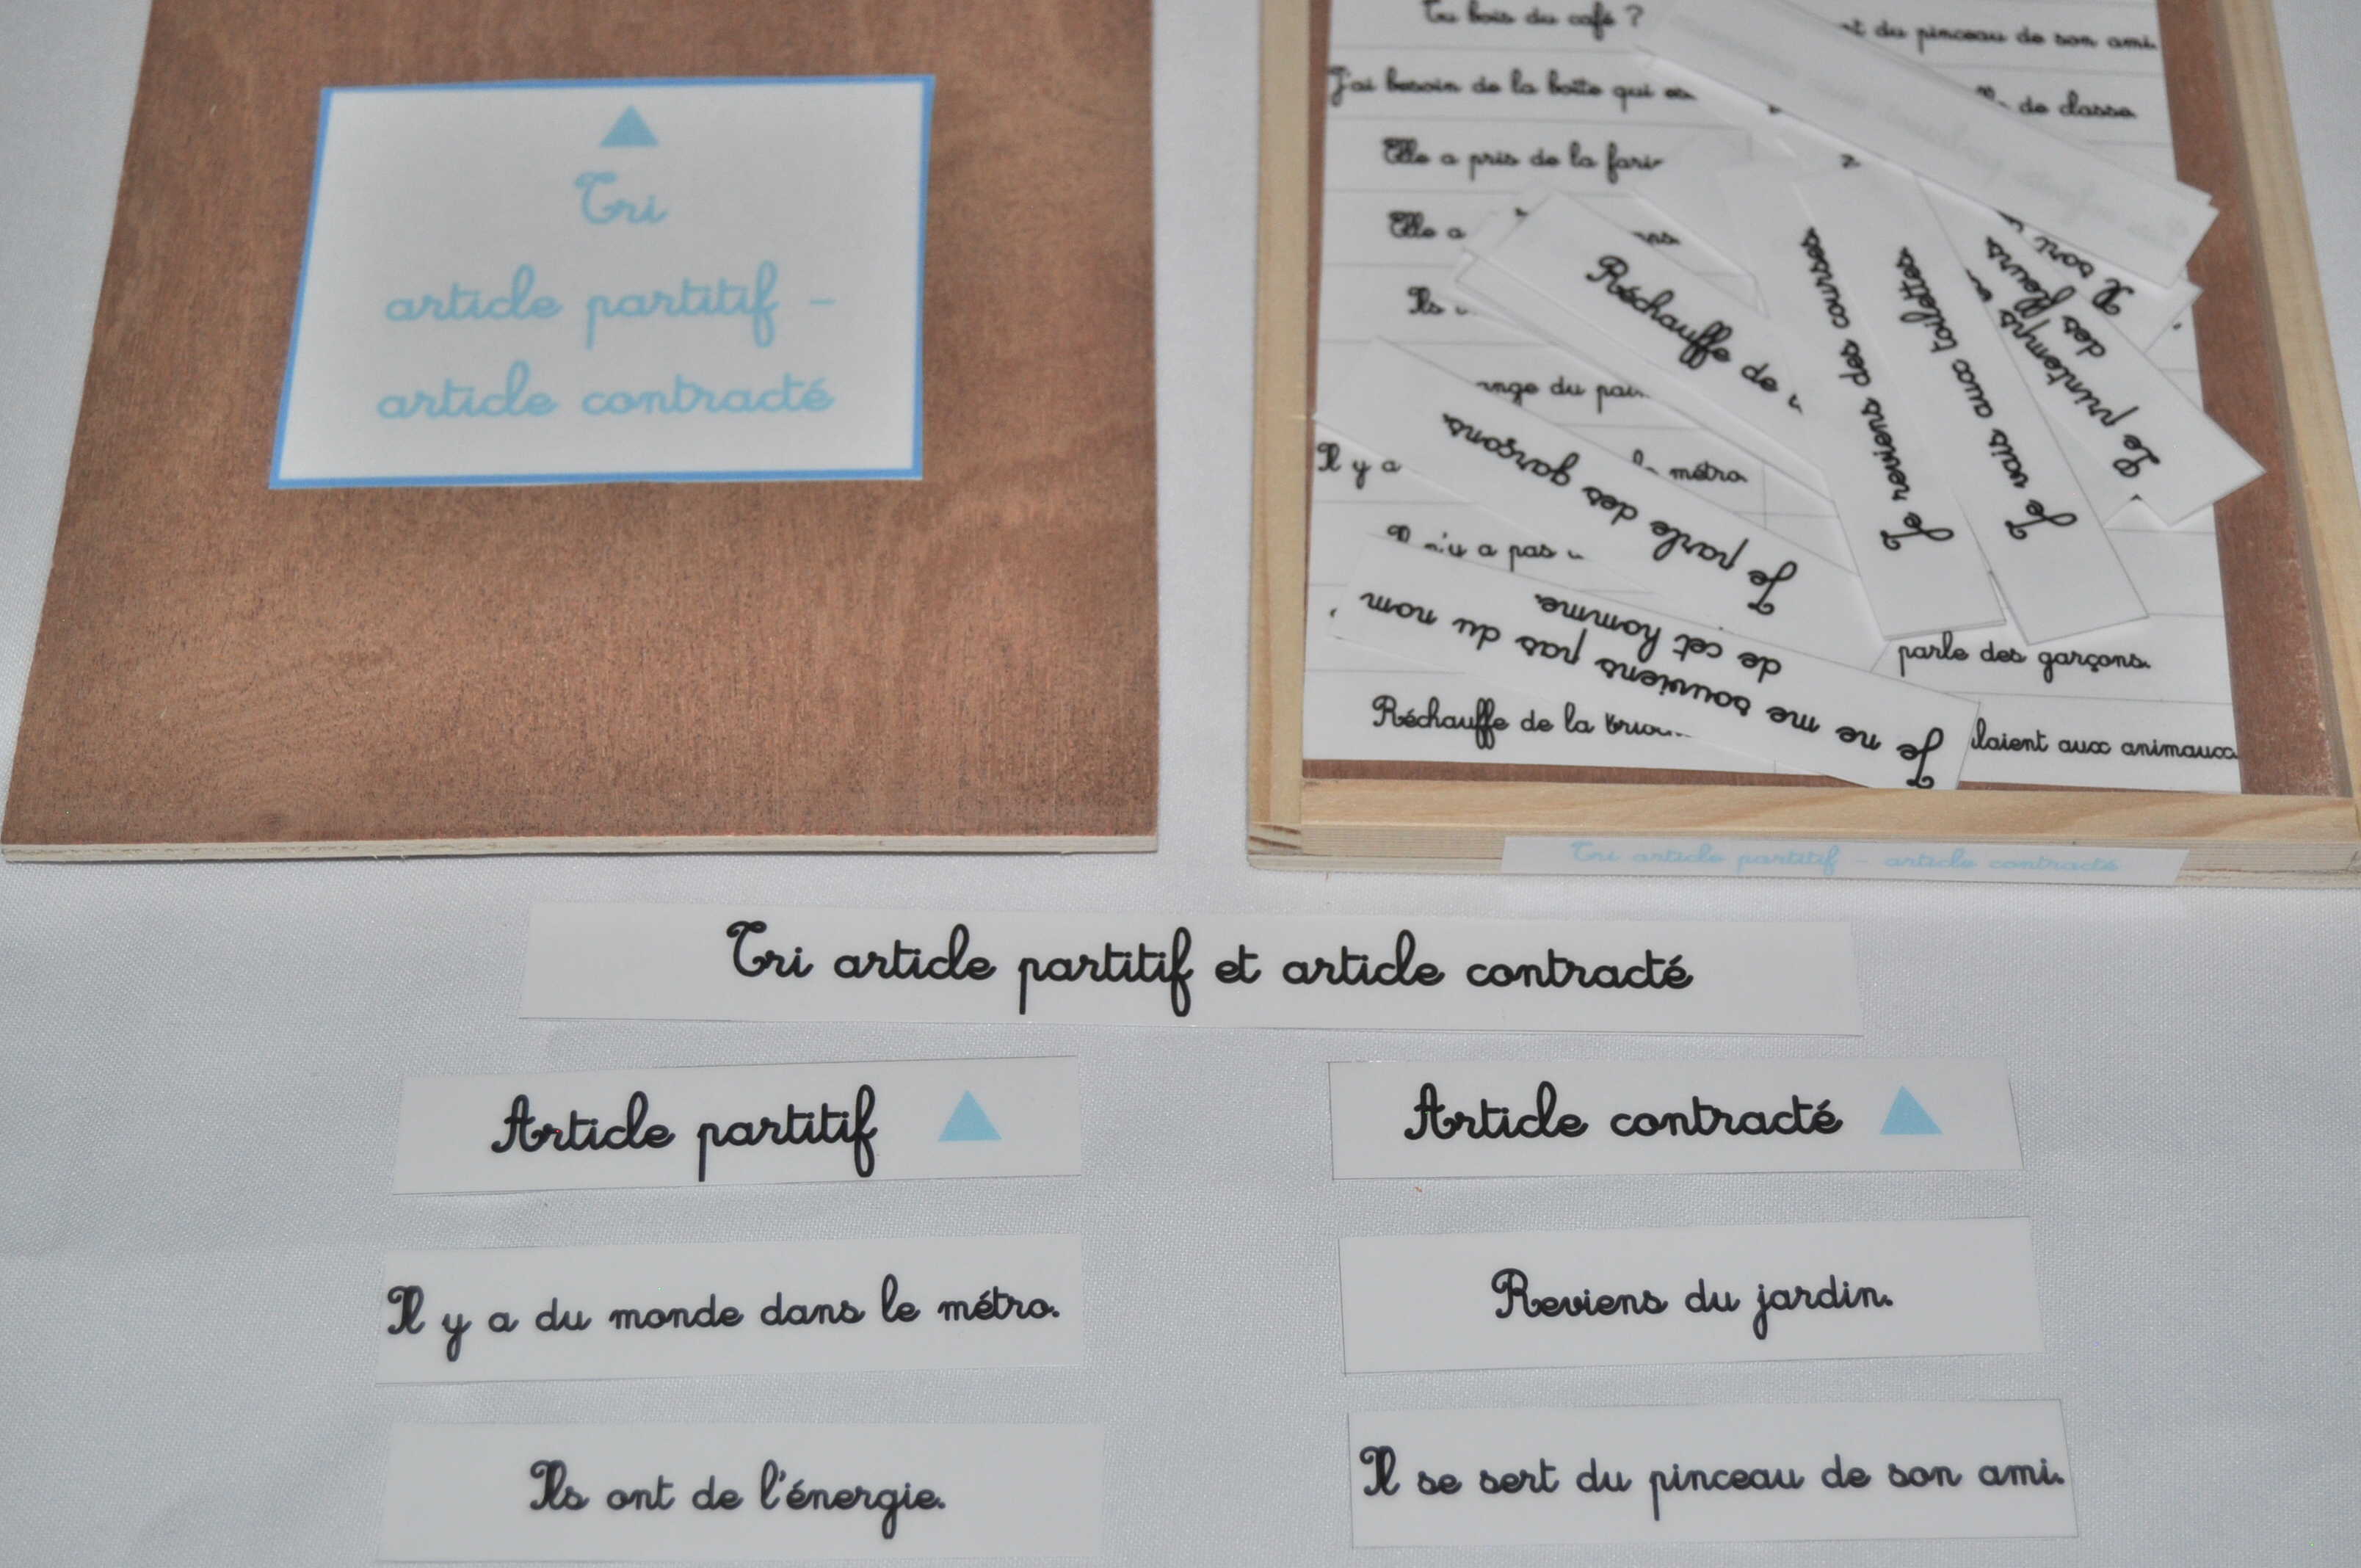 Tri
article partitif -
article contracté
Tu bois du café ?
du pinceau de son ami.
J'ai besoin de la boîte qui
de classe.
Elle a pris de la
Elle a
Ils
du
Il y a
métro.
a pas
parle des garçons.
Réchauffe de la
aux animaux
Réchauffe de
Je reviens des courses.
Je vais aux toilettes.
Le printemps
des fleurs
Il sort
Je parle des garçons.
Je ne me souviens pas du nom
de cet homme.
Tri article partitif - article contracté
Tri article partitif et article contracté
Article partitif
Article contracté
Il y a du monde dans le métro.
Reviens du jardin.
Ils ont de l'énergie.
Il se sert du pinceau de son ami.